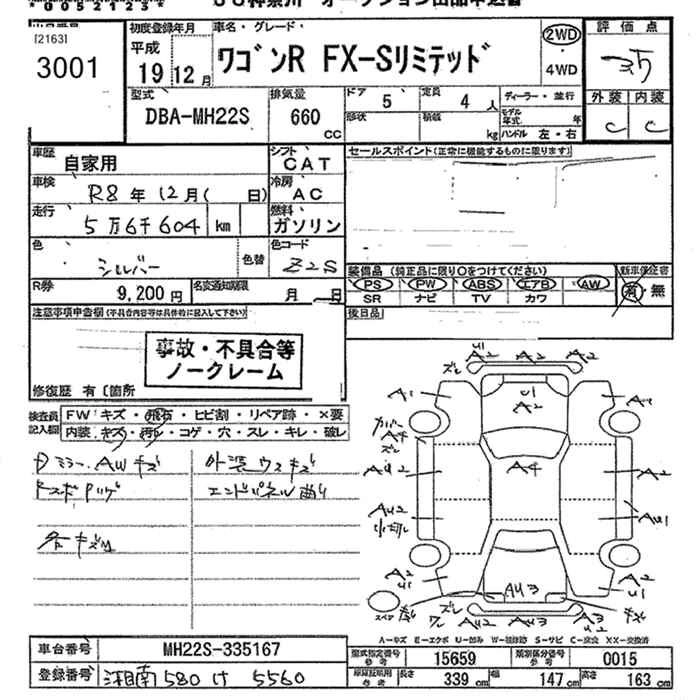 *0052123*
[2163]
3001
初度登録年月
平成
19 12月
車名・グレード
ワゴンR FX-Sリミテッド
2WD
・4WD
評価点
3.5
外装 内装
C C
型式
DBA-MH22S
排気量
660 CC
ドア 5
形状
定員 4 人
積載 kg
ディーラー・並行
モデル年式 年
ハンドル 左・右
車歴 自家用
シフト CAT
セールスポイント(正常に機能するものに限ります)
車検 R8年12月( 日)
冷房 AC
走行 5万6千604 km
燃料 ガソリン
色 シルバー
色替
色コード Z2S
装備品(純正品に限り○をつけてください)
新車保証書
PS PW ABS エアB AW
SR ナビ TV カワ
有・無
R券 9,200円
名変通知期限 月 日
後日品
注意事項申告欄(不具合内容等は具体的に記入して下さい)
事故・不具合等
ノークレーム
修復歴 有〔箇所
検査員記入欄
FW キズ・飛石・ヒビ割・リペア跡・×要
内装 キズ・汚れ・コゲ・穴・スレ・キレ・破レ
外装ウスキズ
エンドパネル曲り
U1 A2 A2 A2
ズレ
A1
U1
A2
A4
ズレ
A4
A2
AU1
A2
U1
AU3
A2
U1
スペア
ズレ
AU2 A2 AU2
A-キズ E-エクボ U-凹み W-補修跡 S-サビ C-腐食 XX-交換済
車台番号 MH22S-335167
登録番号 湘南 580 け 5560
型式指定番号 参考 15659
類別区分番号 参考 0015
長さ 339 cm 幅 147 cm 高さ 163 cm